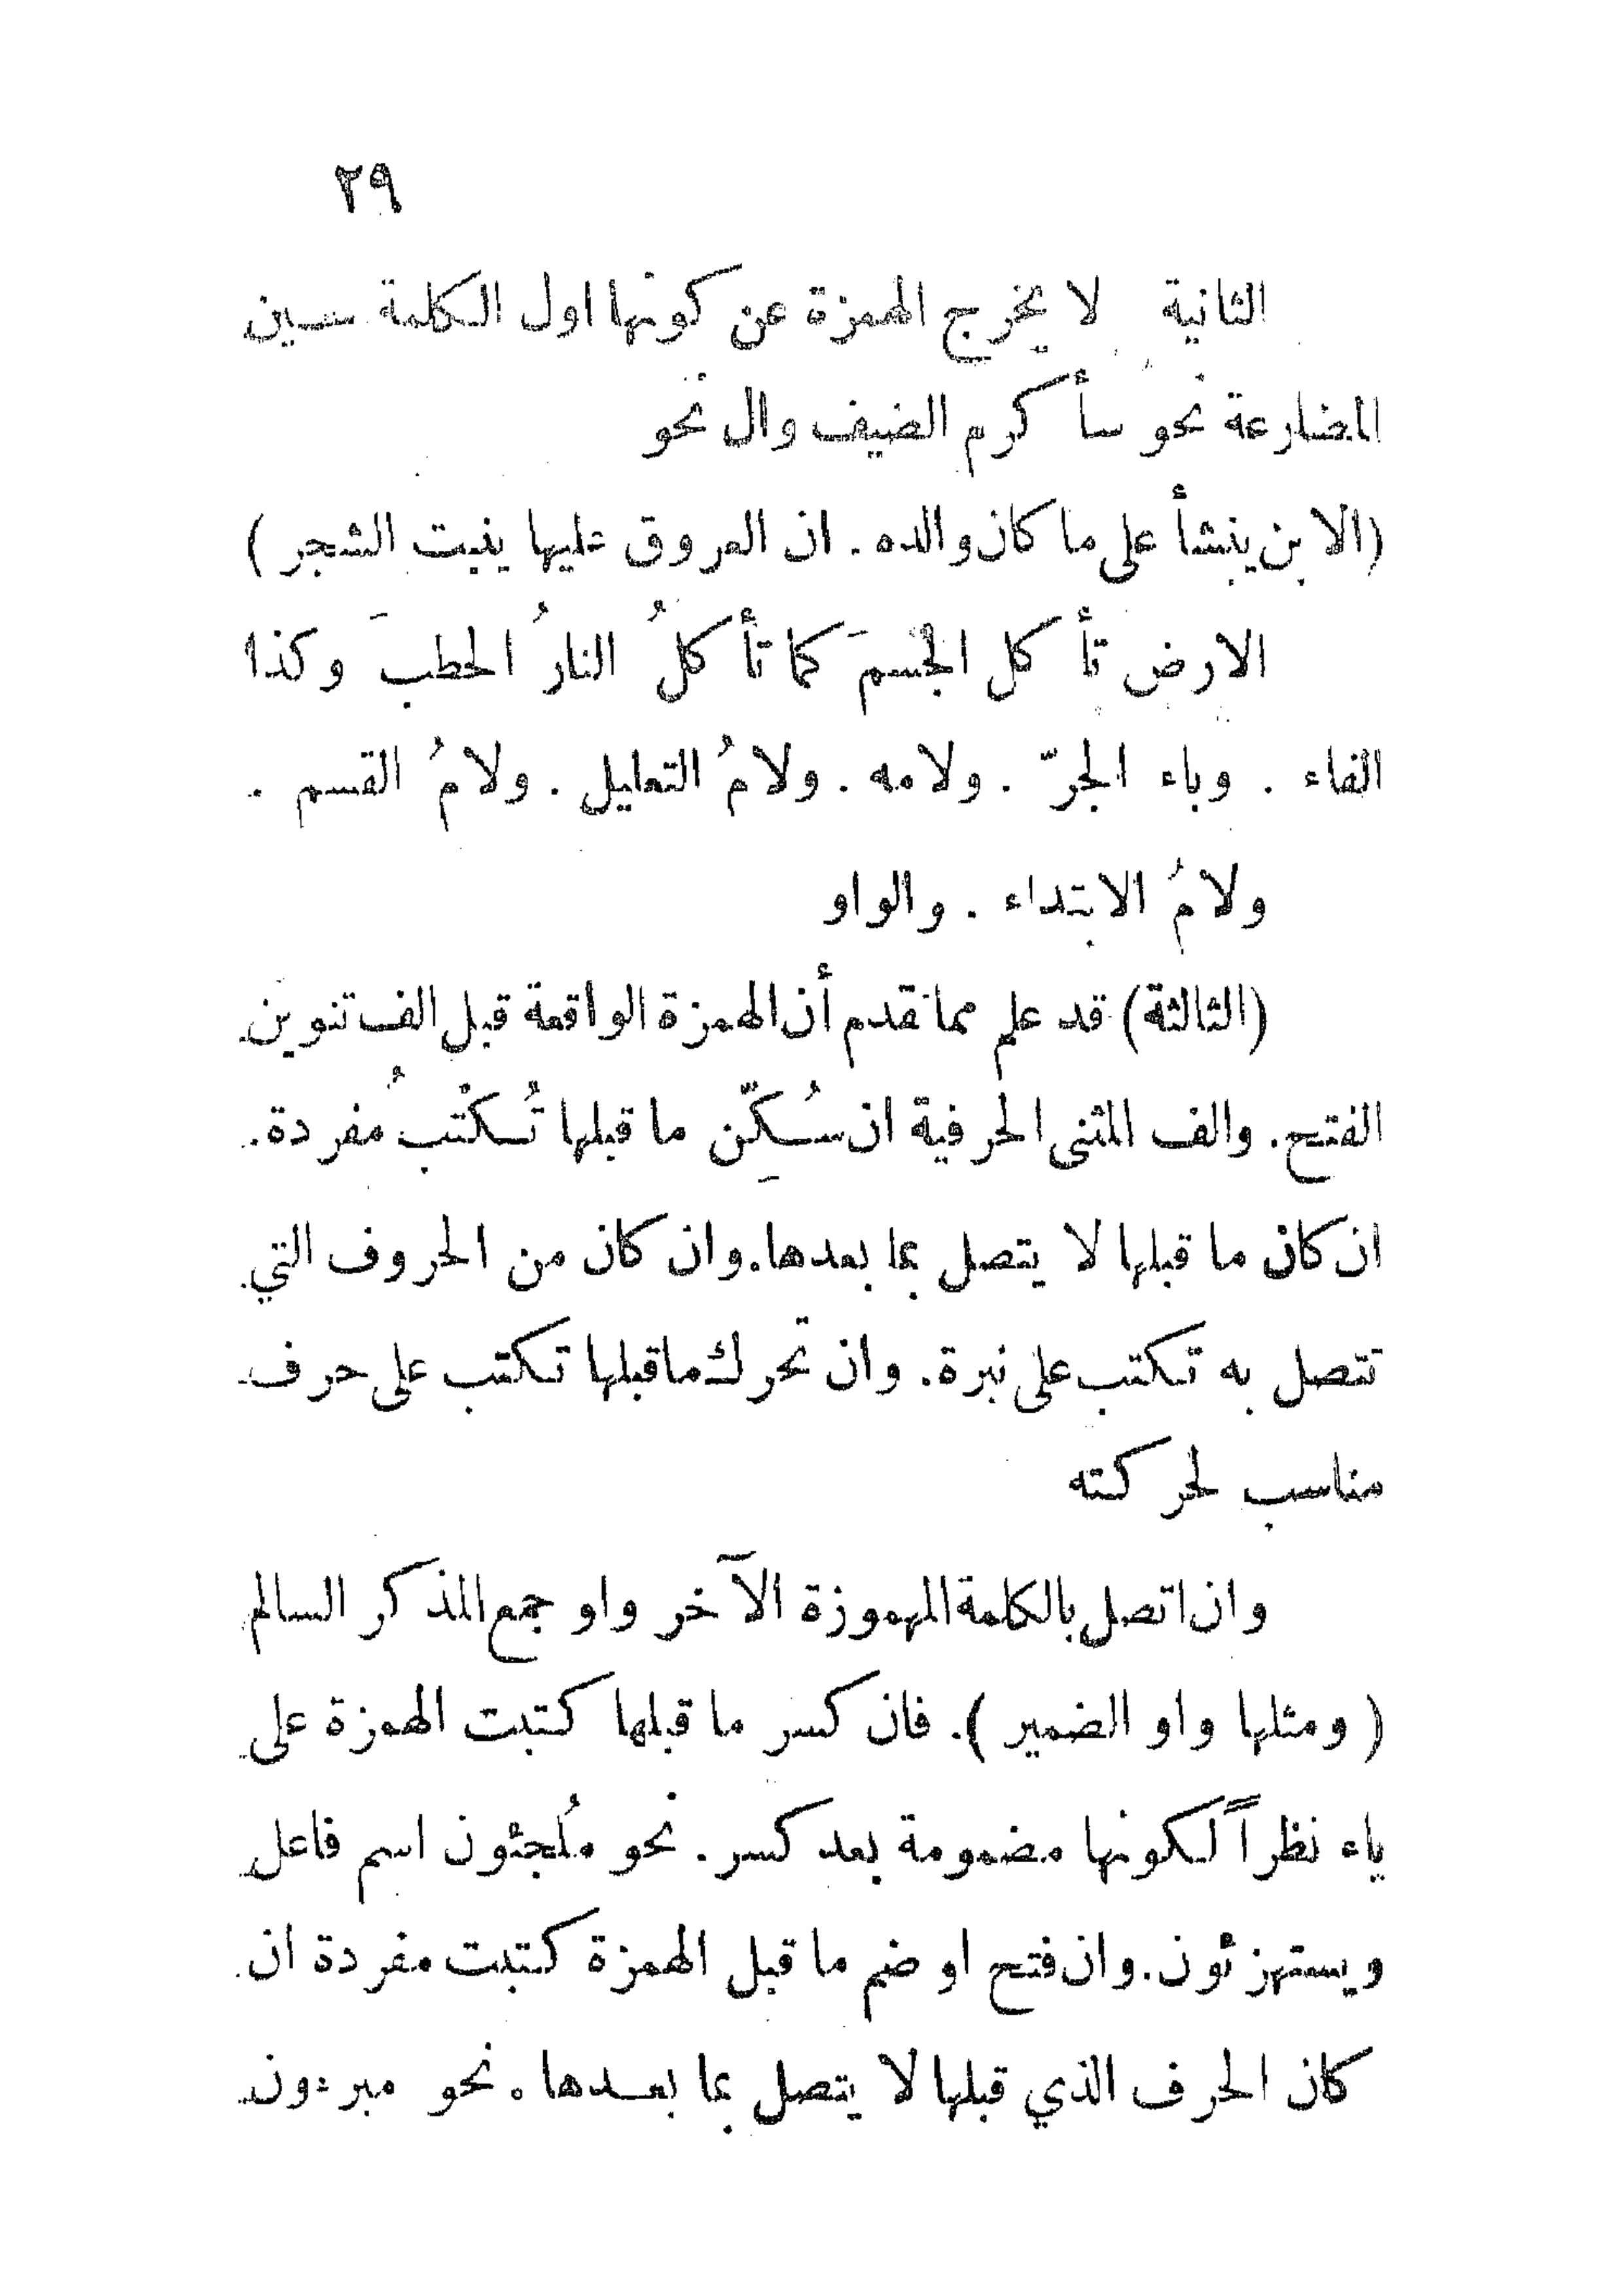 ٢٩
الثانية لا يخرج الهمزة عن كونها اول الكلمة سين
المضارعة نحو سأكرم الضيف وال نحو
(الابن ينشأ على ما كان والده . ان العروق عليها ينبت الشجر)
الارض تأكل الجسمَ كما تأكلُ النارُ الحطبَ وكذا
الفاء . وباء الجرّ . ولامه . ولامُ التعليل . ولامُ القسم .
ولامُ الابتداء . والواو
(الثالثة) قد علم مما تقدم أن الهمزة الواقعة قبل الف تنوين
الفتح . والف المثنى الحرفية ان سُكِّن ما قبلها تُكْتبُ مفردة .
ان كان ما قبلها لا يتصل بما بعدها . وان كان من الحروف التي
تتصل به تكتب على نبرة . وان تحرك ما قبلها تكتب على حرف
مناسب لحركته
وان اتصل بالكلمة المهموزة الآخر واو جمع المذكر السالم
( ومثلها واو الضمير ) . فان كسر ما قبلها كتبت الهمزة على
ياء نظراً لكونها مضمومة بعد كسر . نحو مُلجئون اسم فاعل
ويستهزئون . وان فتح او ضم ما قبل الهمزة كتبت مفردة ان
كان الحرف الذي قبلها لا يتصل بما بعدها . نحو مبرءون